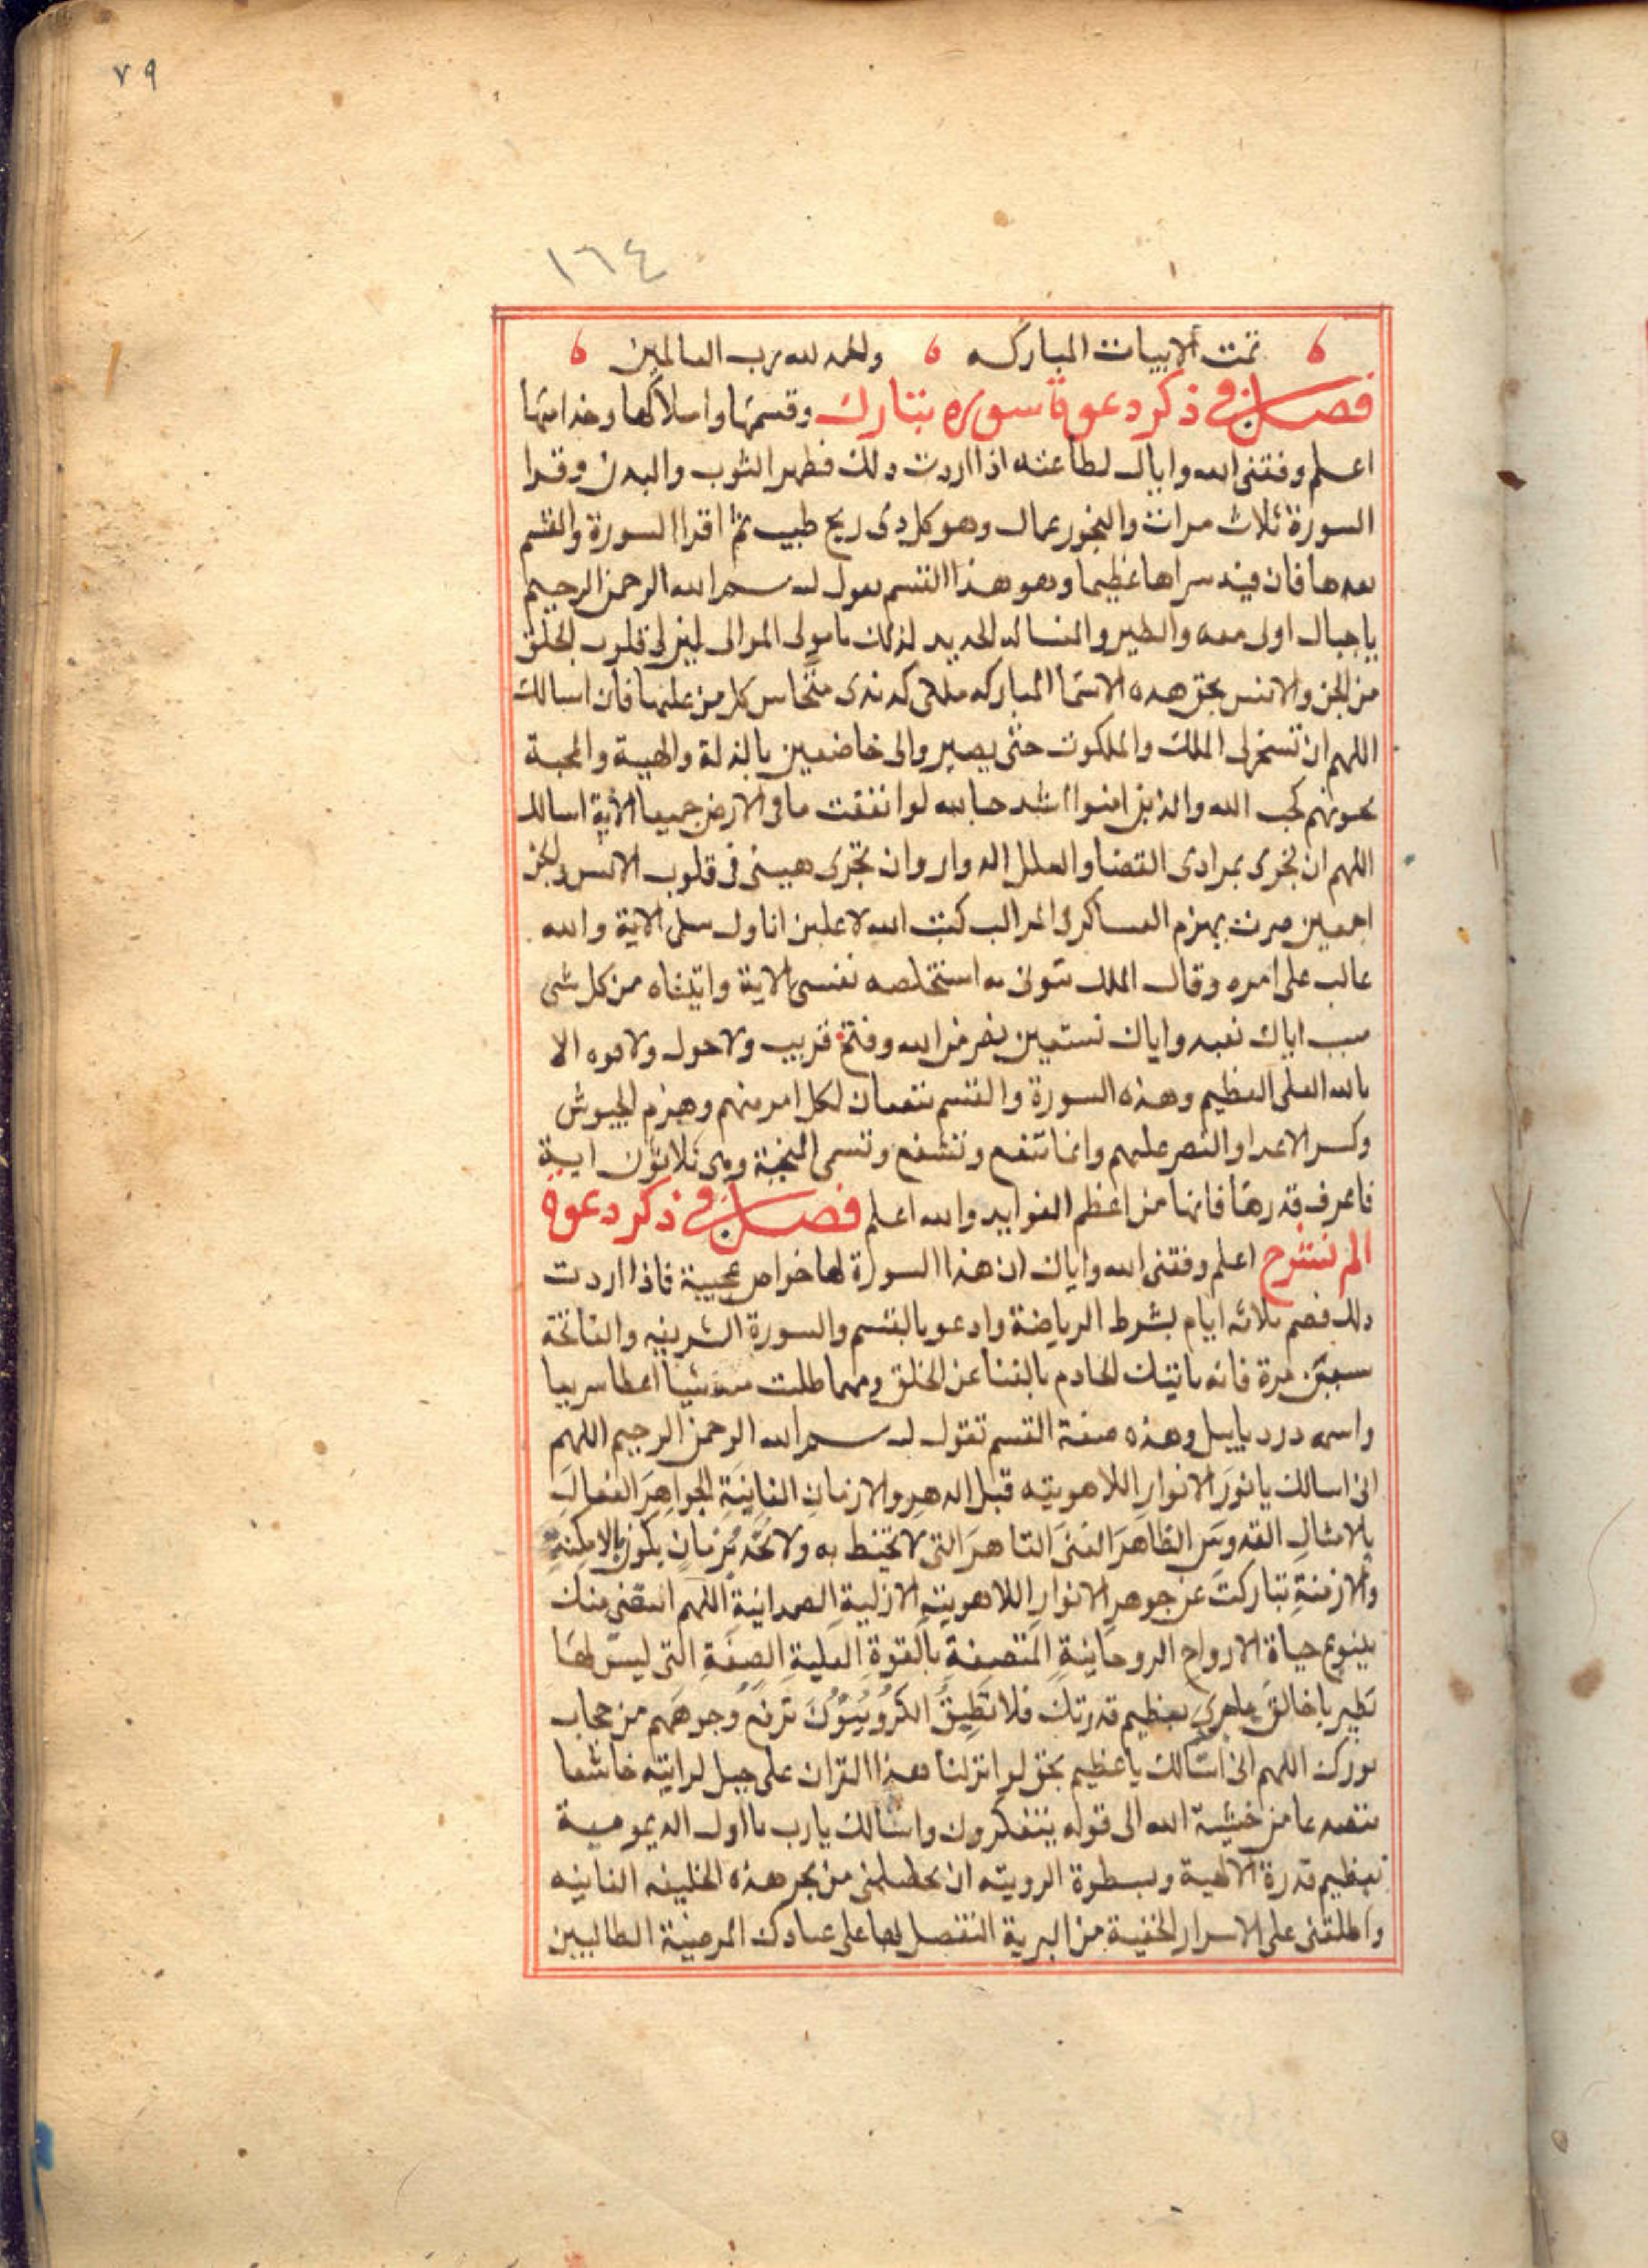 ٧٩
١٦٤
تمت الابيات المباركه والحمد لله رب العالمين
فصل في ذكر دعوة سوره تبارك وقسمها واملاكها وخدامها
اعلم وفقني الله واياك لطاعته اذا اردت دلك فطهر الثوب والبدن وقرا
السورة ثلاث مرات والبخور عمال وهو كل دى ريح طيب ثم اقرا السورة والقسم
بعدها فان فيه سرا عظيما وهو هذا القسم تقول بسم الله الرحمن الرحيم
ياجبال اوبى معه والطير والنا له الحديد لذلك يا مولى الموالى لين لى قلوب الخلق
من الجن والانس بحق هده الاسما المباركه كل من عليها فان اسالك
اللهم ان تسخر لى الملك والملكوت حتى يصيروا لى خاضعين بالذلة والهيبة والمحبة
يحبونهم كحب الله والذين امنوا اشد حبا لله لو انفقت ما في الارض جميعا الاية اسالك
اللهم ان تجرى بمرادى القضا والفلك الدوار وان تجرى هيبتى فى قلوب الانس والجن
اجمعين بهزم العساكر كتب الله لاغلبن انا ورسلى الاية والله
غالب على امره وقال الملك ائتونى به استخلصه لنفسى الاية واتيناه من كل شى
سببا اياك نعبد واياك نستعين نصر من الله وفتح قريب ولا حول ولا قوه الا
بالله العلى العظيم وهذه السورة والقسم ينفعان لكل امر مهم وهزم الجيوش
وكسر الاعدا والنصر عليهم وانها تنفع وتشفع وتسمى المنجية وهى ثلاثون اية
فاعرف قدرها فانها من اعظم الفوايد والله اعلم فصل في ذكر دعوة
الم نشرح اعلم وفقني الله واياك ان هذا السورة لها خواص عجيبة فاذا اردت
دلك فصم ثلاثه ايام بشرط الرياضة وادعو بالقسم والسورة الشريفه والفاتحة
سبعين مرة فانه ياتيك الخادم بالغنا عن الخلق ومهما طلبت منه شيا اعطا سريعا
واسمه دردياييل وهذه صفة القسم تقول بسم الله الرحمن الرحيم اللهم
انى اسالك يا نور الانوار اللاهوتيه قبل الدهر والازمان الفانية الجواهر الفعال
بالامثال القدوس الظاهر الغنى القاهر التى لا تحيط به ولا تحد بزمان يكون بالامكنة
والازمنة تباركت عن جوهر الانوار اللاهوتية الازلية الصمدانية اللهم اسقنى منك
بينبوع حياة الارواح الروحانية المتصفة بالقوة العلية الصفة التى ليس لها
نظير يا خالق بعظيم قدرتك فلا تطيق الكروبيون ترفع وجوههم من حجاب
نورك اللهم انى اسالك يا عظيم بحق لو انزلنا هذا القران على جبل لرايته خاشعا
متصدعا من خشية الله الى قوله يتفكرون واسالك يارب يا اول الديمومية
بعظيم قدرة الالهية وبسطوة الربوبيته ان من بحر هذه الخليفه الفانيه
واطلعنى على الاسرار الخفية من البرية على عبادك المرضية الطالبين